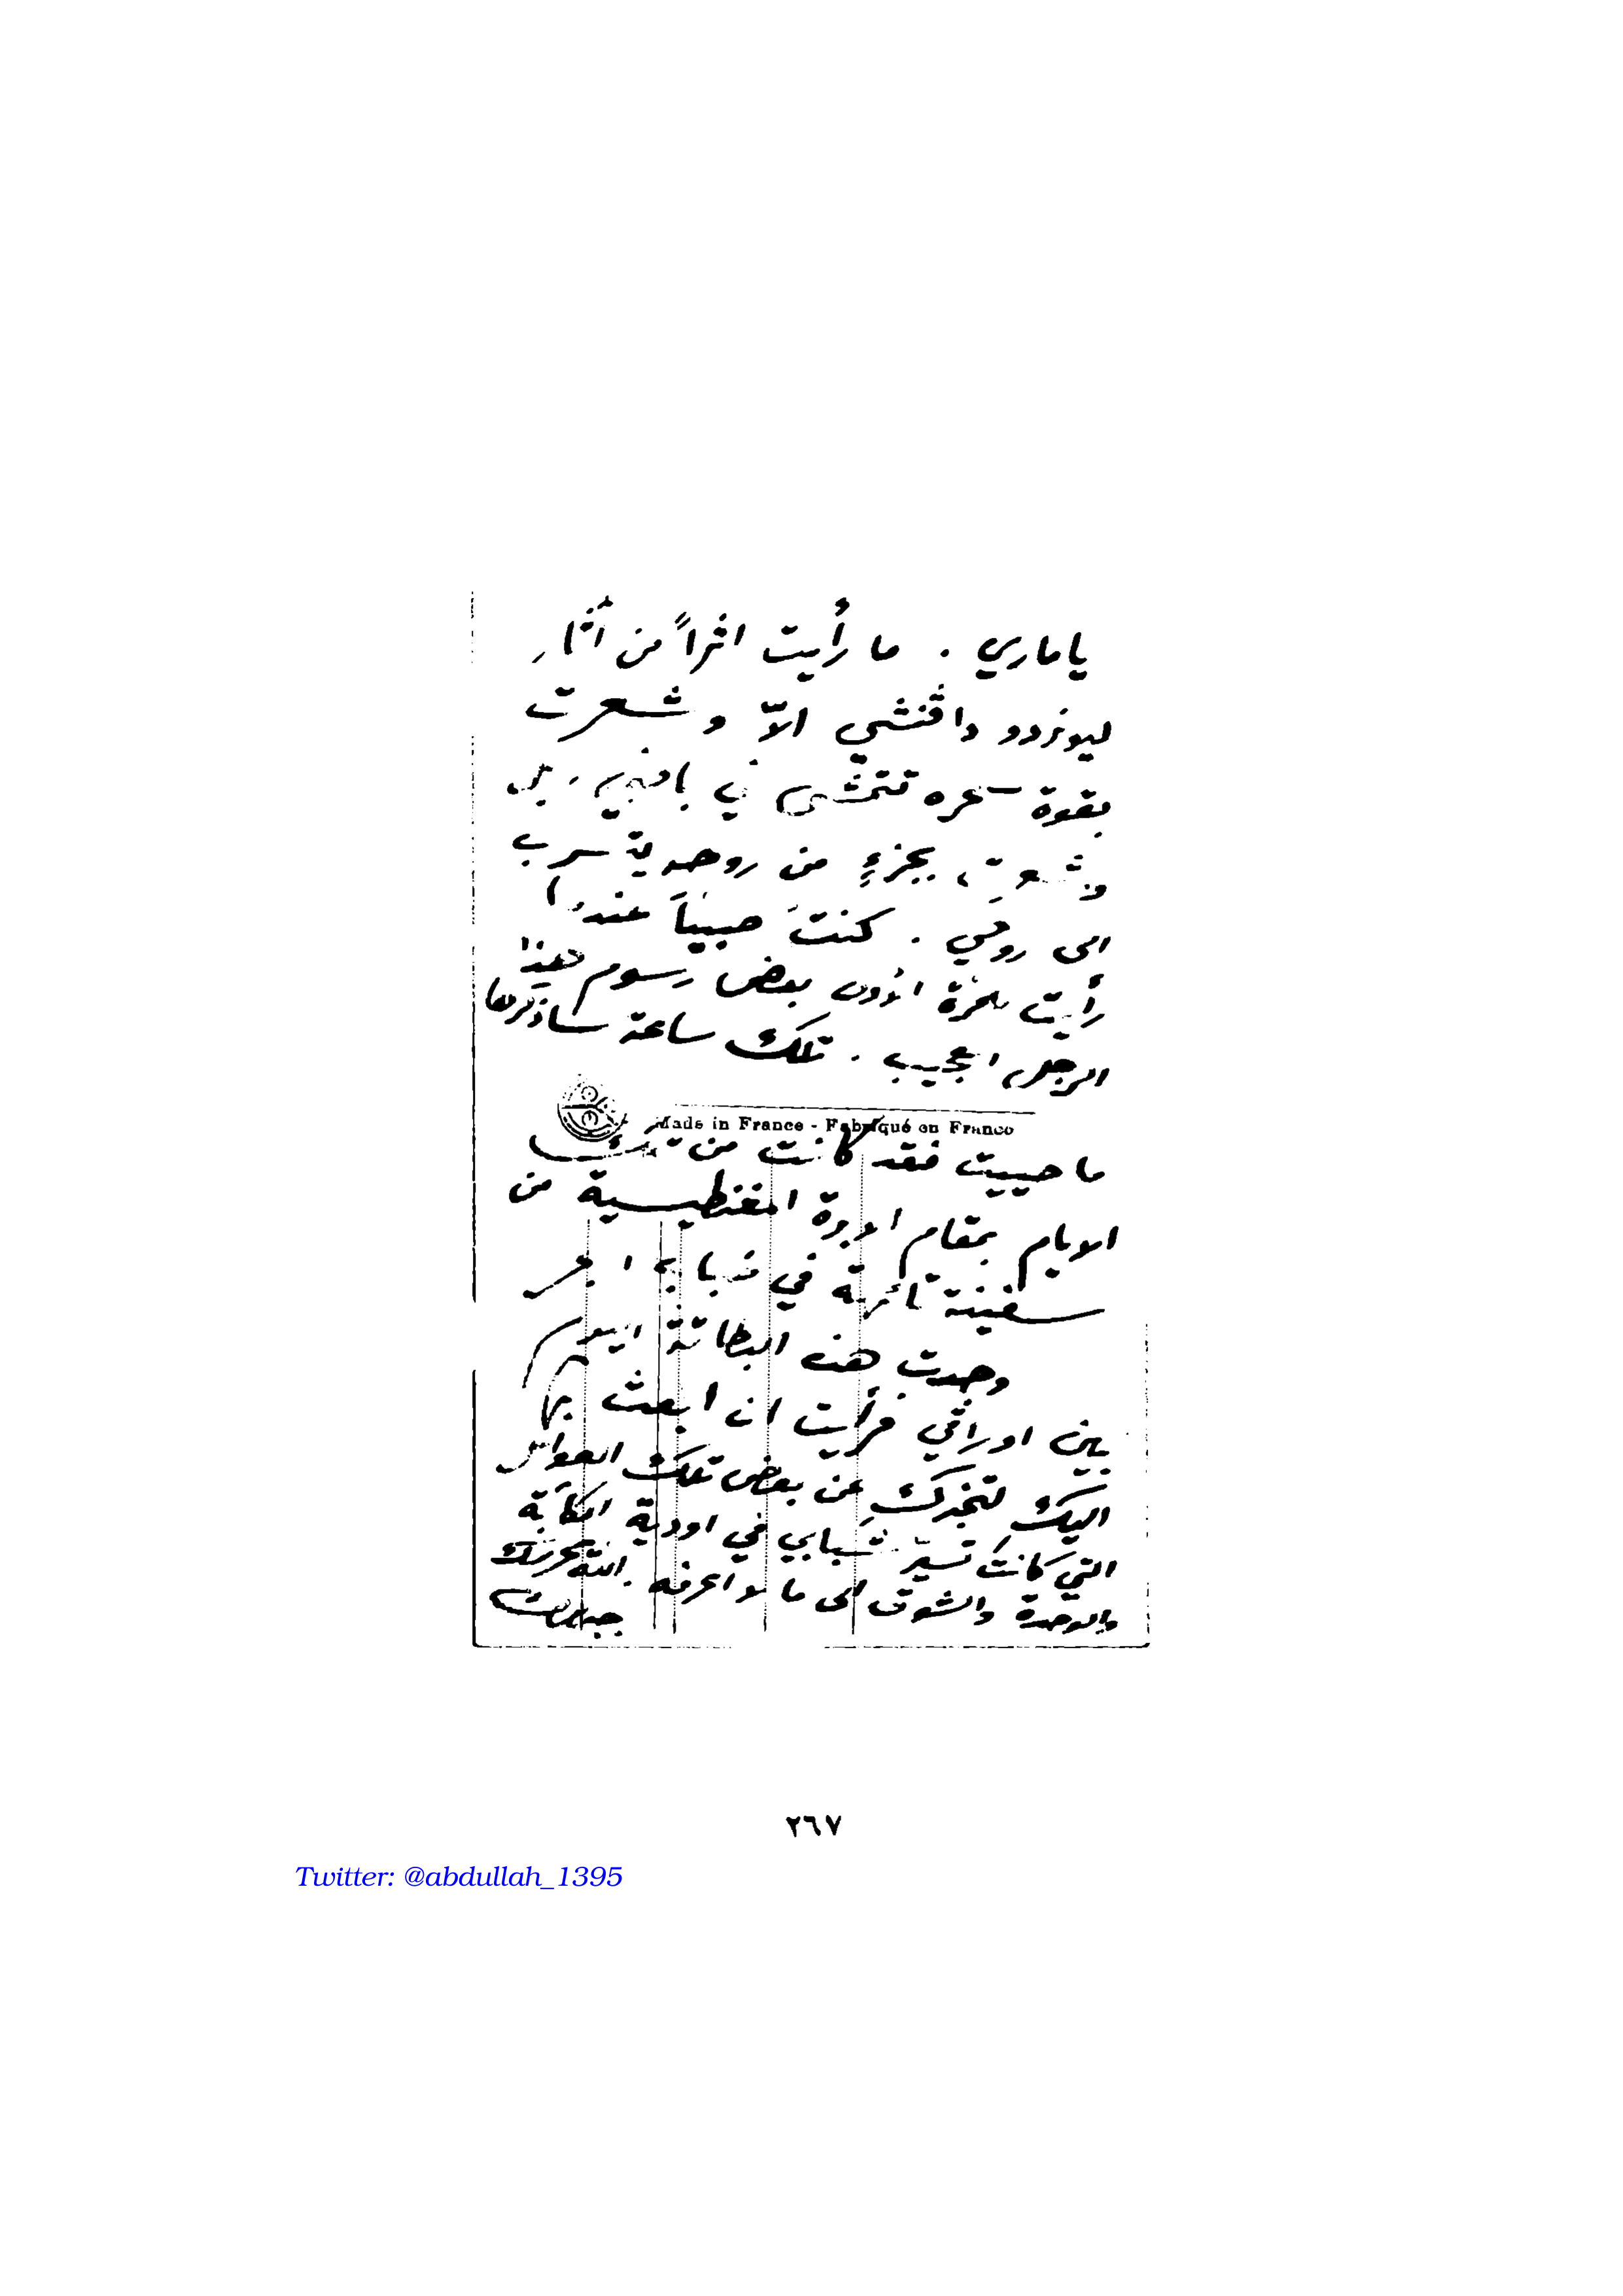 يا ماري . ما رأيت اثراً من أثار
ليونردو دافنشي الاّ وشعرت
بقوة سحره تتمشى في باطني ، بل
وشعرت بجزءٍ من روحه يتسرب
الى روحي . كنتُ صبيّاً عندما
رأيت للمرة الأولى بعض رسوم هذا
الرجل العجيب . تلك ساعة ساذكرها
Made in France - Fabriqué en France
ما حييت فقد كانت من تلك
الايام بمقام الابرة المغنطيسية من
سفينة تائهة في ضباب البحر
وجدت هذه البطاقة اليوم
بين اوراقي فرأيت ان ابعث بها
اليكِ لتخبركِ عن بعض تلك العوامل
التي كانت تسيّر شبابي في اودية الكآبة
والوحدة والشوق الى ما لا اعرفه . الله يحرسك
جبران
٢٦٧
Twitter: @abdullah_1395